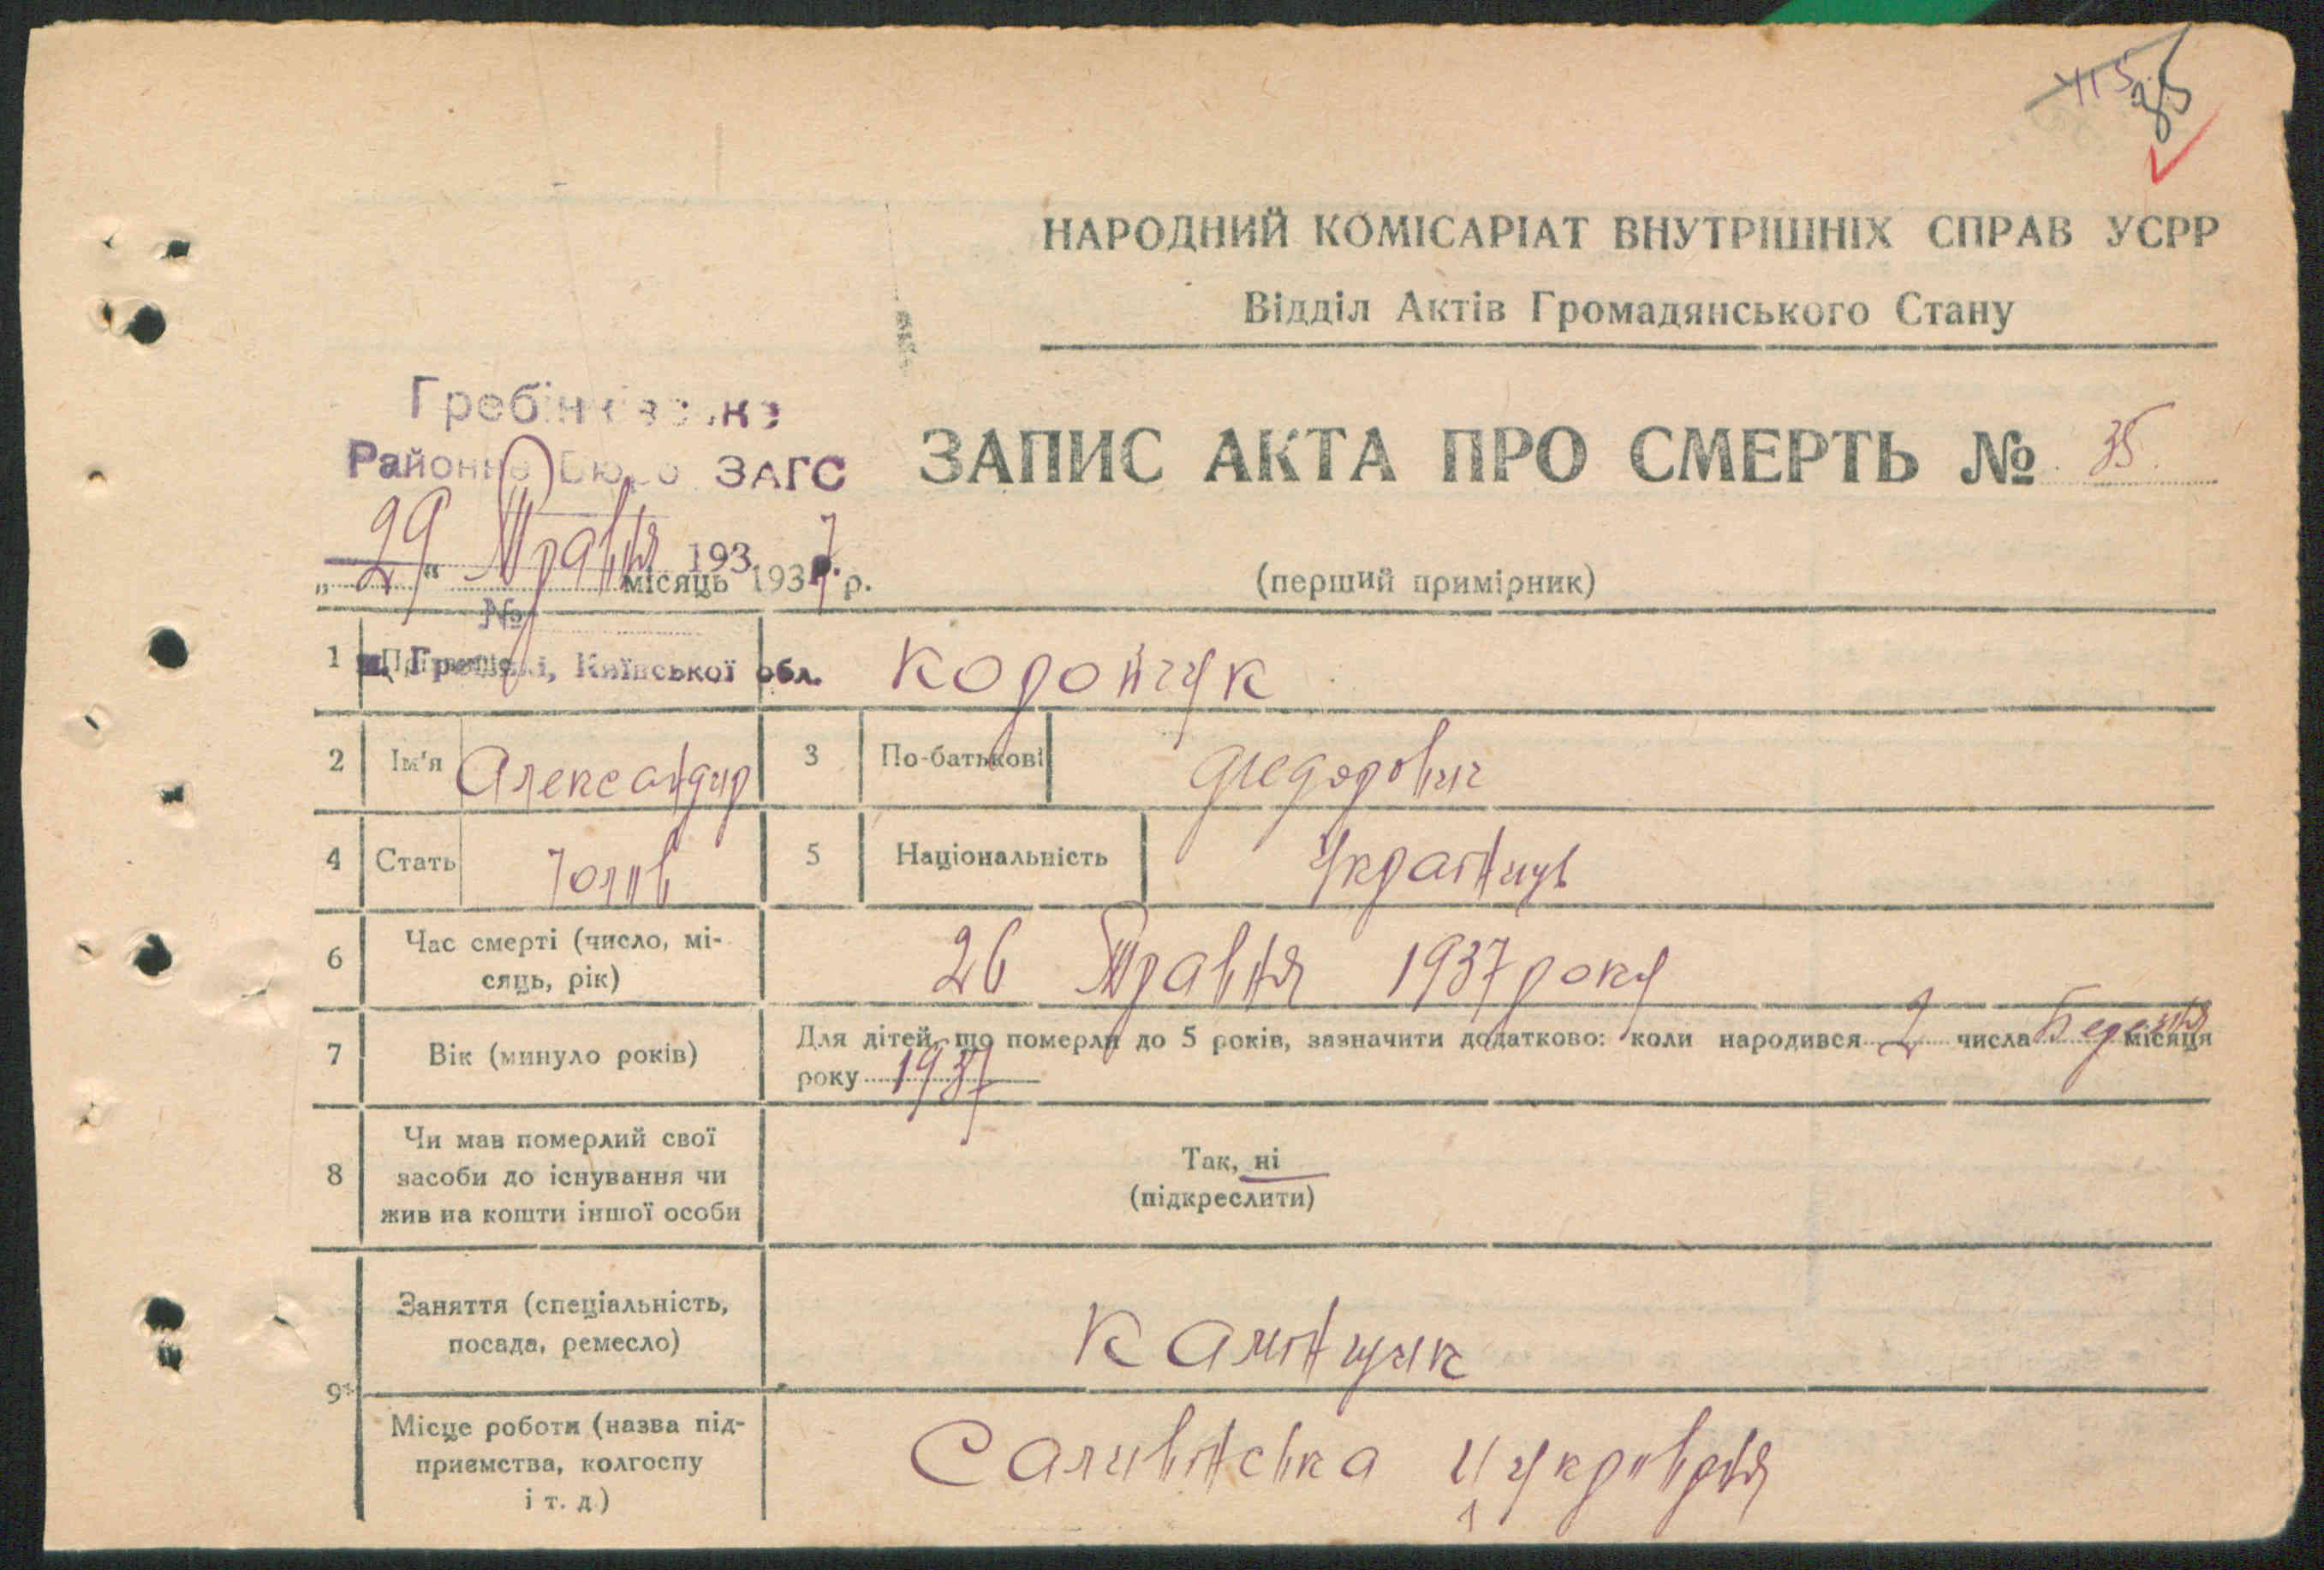 35
НАРОДНИЙ КОМІСАРІАТ ВНУТРІШНІХ СПРАВ УСРР
Відділ Актів Громадянського Стану
Районне Бюро ЗАГС
ЗАПИС АКТА ПРО СМЕРТЬ № 35
29 Травня 1937 р.
„ “ місяць 1937 р.
(перший примірник)
№
1 Прізвище
Гребінкі, Київської обл.
2 Ім'я Александр 3 По-батькові Федорович
4 Стать 5 Національність Українець
6 Час смерті (число, мі-
сяць, рік) 26 Травня 1937 року
7 Вік (минуло років) Для дітей, що померли до 5 років, зазначити додатково: коли народився 2 числа Березня місяця
року 1937
8 Чи мав померлий свої
засоби до існування чи
жив на кошти іншої особи
Так, ні
(підкреслити)
9 Заняття (спеціальність,
посада, ремесло)
Місце роботи (назва під-
приємства, колгоспу
і т. д.)
Саливінська цукроварня